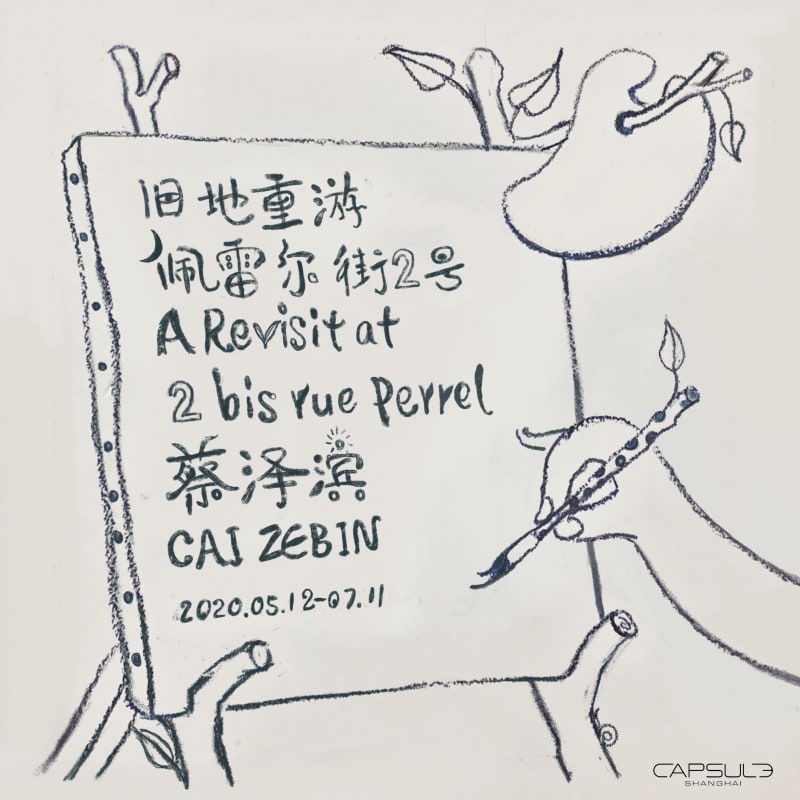 旧地重游
佩雷尔街2号
A Revisit at
2 bis rue Perrel
蔡泽滨
CAI ZEBIN
2020.05.12-07.11
CAPSULE
SHANGHAI